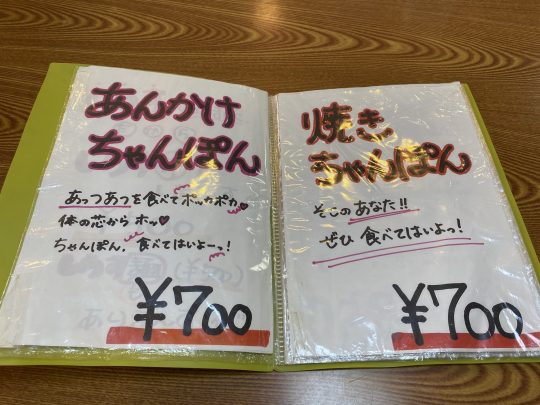 あんかけ
ちゃんぽん
あっつあっつを食べてポッカポカ♥
体の芯から ホッ♥
ちゃんぽん、食べてはいよーっ!
¥700
焼き
ちゃんぽん
そこの あなた!!
ぜひ 食べてはいよっ!
¥700